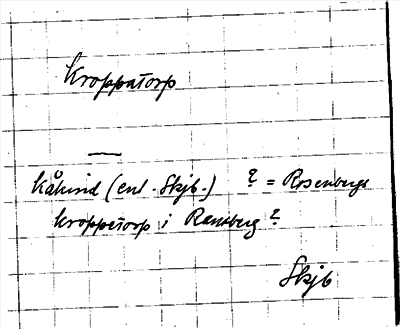 Kroppatorp
—
Kåkind (enl. Skjb.) ? = Rosenbergs
Kroppetorp i Ransberg?
Skjb